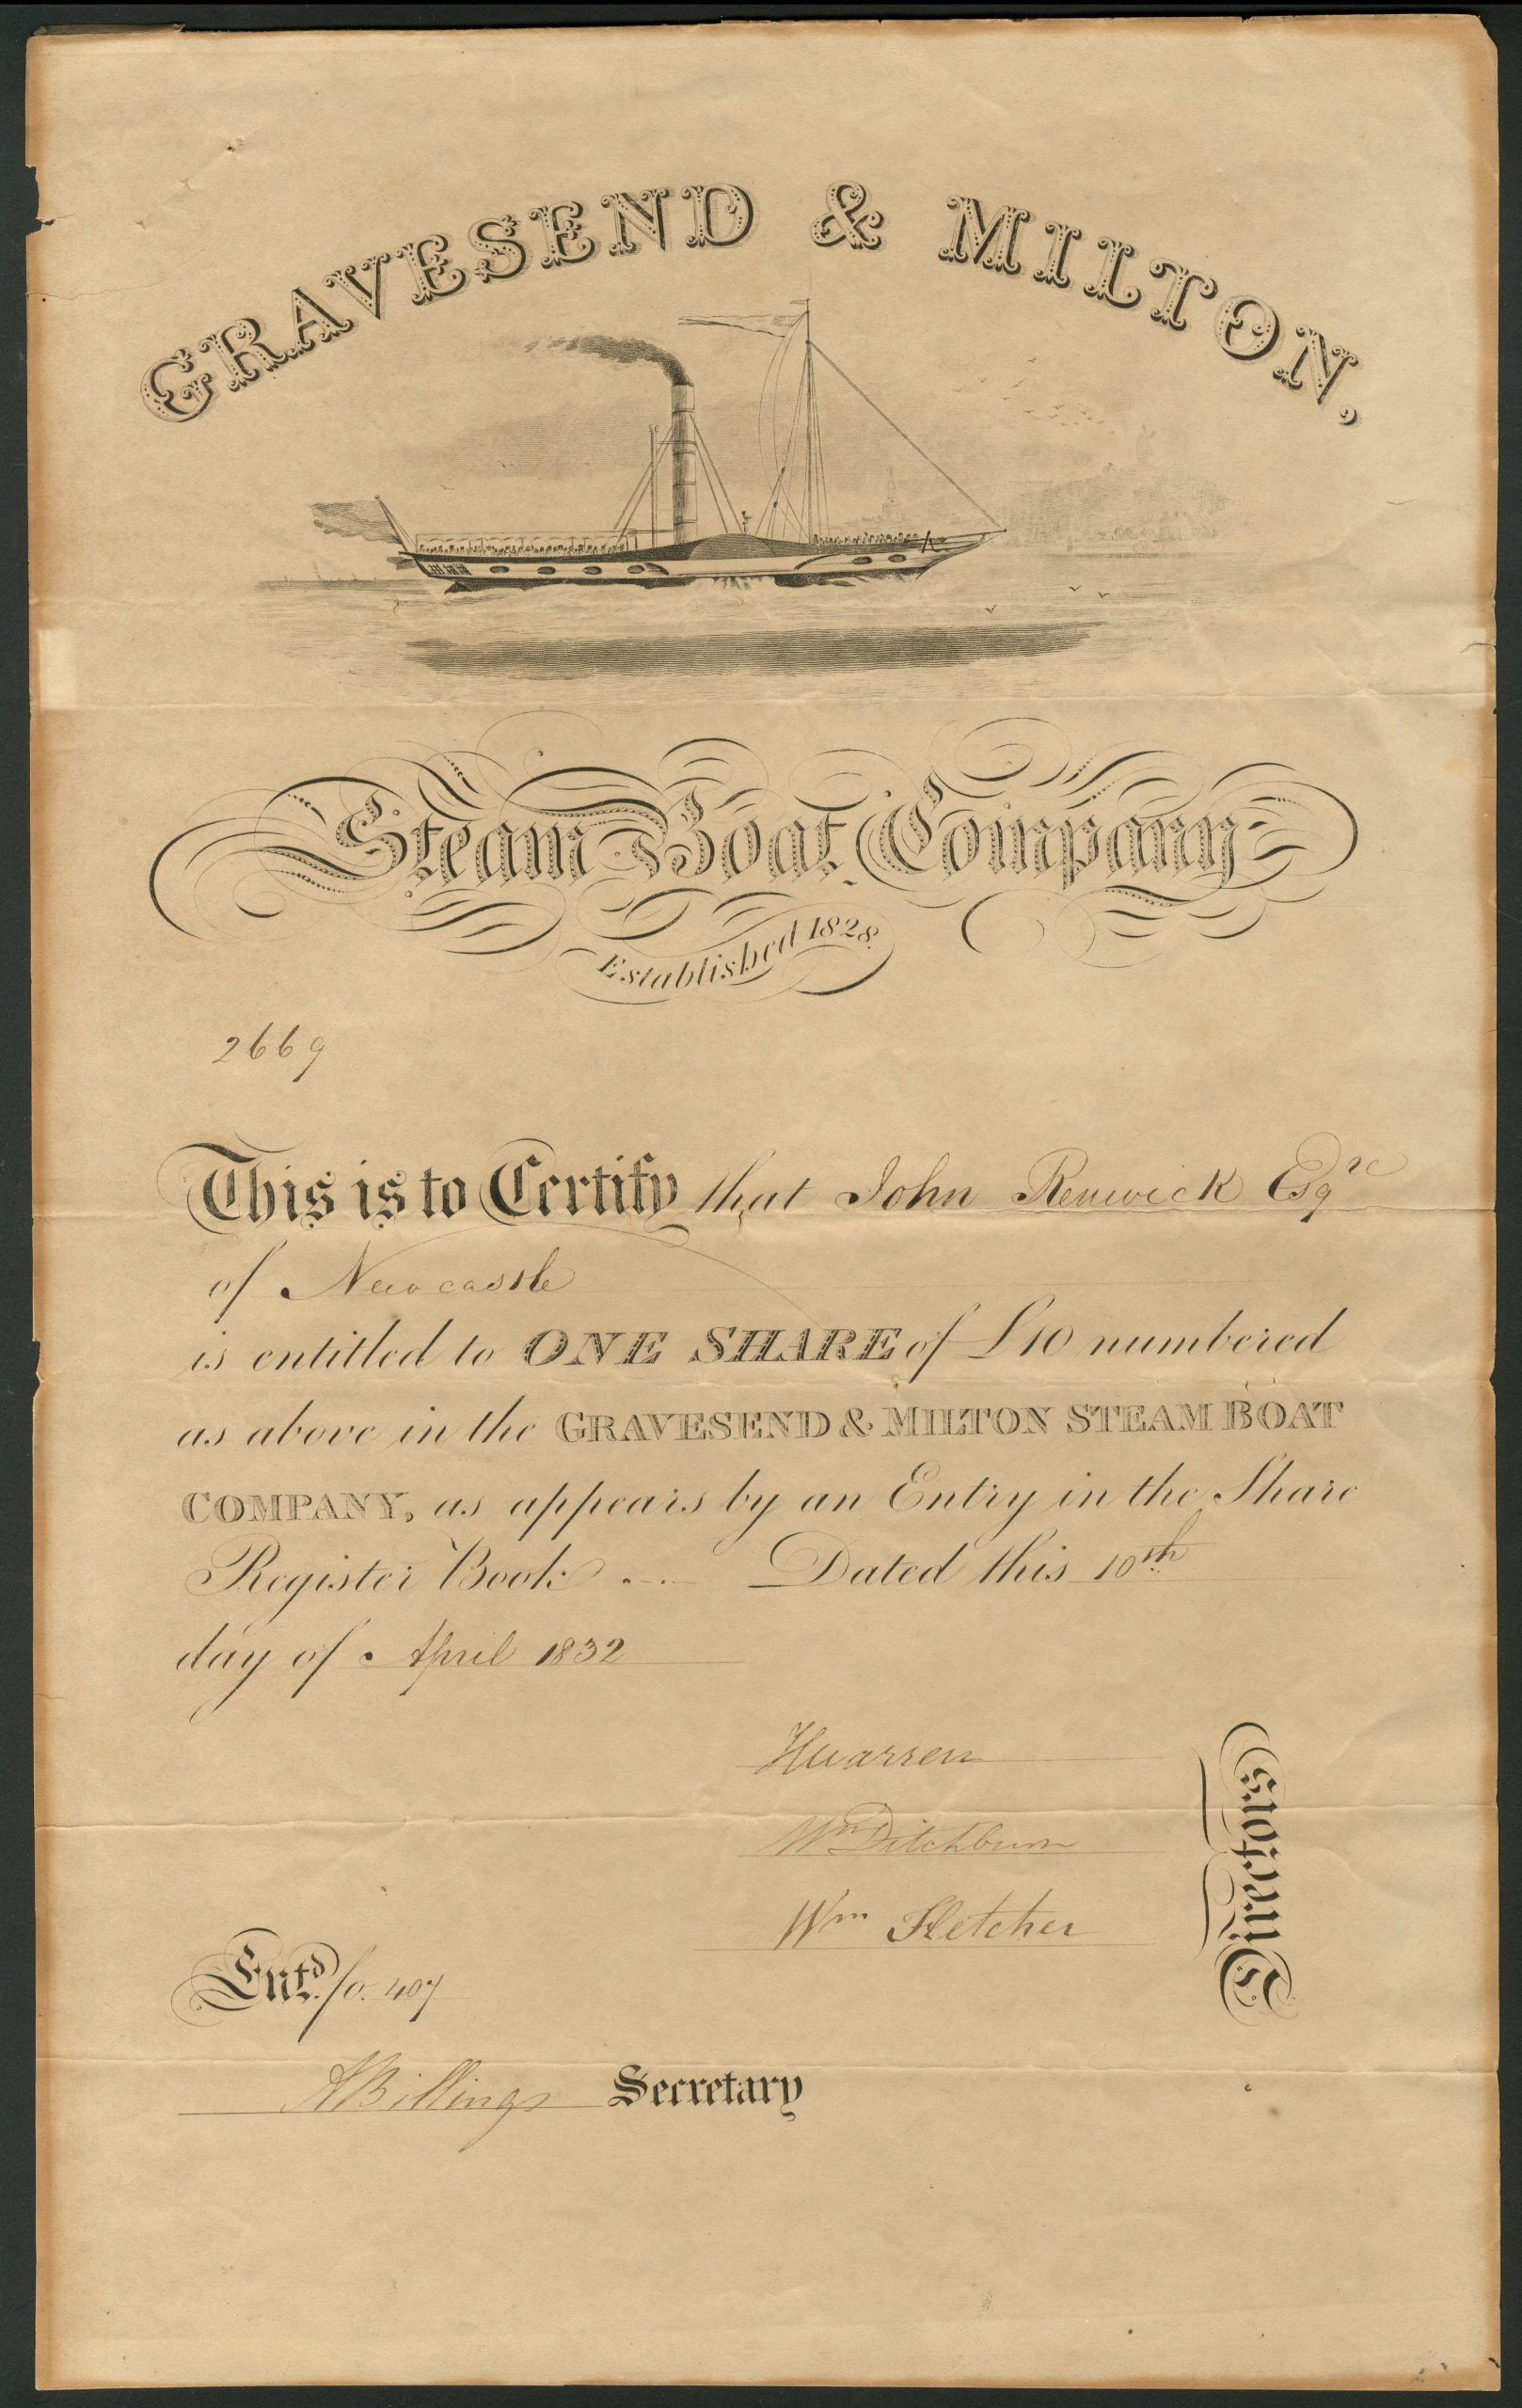 GRAVESEND & MILTON,
Steam Boat Company
Established 1828.
2669
This is to Certify that John Renwick Esqre
of Newcastle
is entitled to ONE SHARE of £10 numbered
as above in the GRAVESEND & MILTON STEAM BOAT
COMPANY, as appears by an Entry in the Share
Register Book Dated this 10th
day of April 1832
HWarren
Wm Ditchburn
Wm Fletcher
Directors
Entd. fo. 407
ABillings Secretary